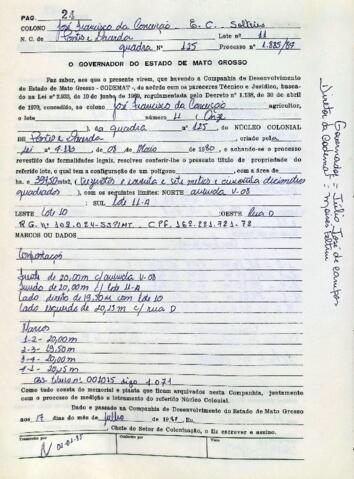 PAG. 24
COLONO José Francisco da Conceição E. C. Solteiro
N. C. de Pontes e Lacerda Lote nº 11
quadra Nº 125 Processo nº 1.885/87
O GOVERNADOR DO ESTADO DE MATO GROSSO
Faz saber, aos que a presente virem, que havendo a Companhia de Desenvolvimento
do Estado de Mato Grosso - CODEMAT -, de acôrdo com os pareceres Técnico e Jurídico, basea-
do na Lei nº 2.933, de 10 de junho de 1969, regulamentada pelo Decreto nº 1.138, de 30 de abril
de 1970, concedido, ao colono José Francisco da Conceição agricultor,
o lote número 11 (Onze
) na quadra nº 125, DO NÚCLEO COLONIAL
DE Pontes e Lacerda criado pela
lei nº 4.180 de 08 de Maio de 1980, e achando-se o processo
revestido das formalidades legais, resolveu conferir-lhe o presente título de propriedade do
referido lote, o qual tem a configuração de um polígono com a área de
ha.
quadrados), com os seguintes limites: NORTE avenida V-08
SUL lote 11-A
LESTE lote 10 OESTE Rua D
MARCOS OU DADOS
Confrontações
frente de 20,00m c/ avenida V-08
fundo de 20,00m c/ lote 11-A
lado direito de 19,50m com lote 10
lado esquerdo de 20,25m c/ rua D
Marcos
1-2 - 20,00m
2-3 - 19,50m
3-4 - 20,00m
4-1 - 20,25m
Como tudo consta do memorial e planta que ficam arquivados nesta Companhia, juntamente
com o processo de medição e loteamento do referido Núcleo Colonial.
Dado e passado na Companhia de Desenvolvimento do Estado de Mato Grosso
aos 17 dias do mês de julho de
, Chefe do Setor de Colonização, o fiz escrever e assino.
Transcrito por
Conferido por
Visto
Governador = Julio José de Campos